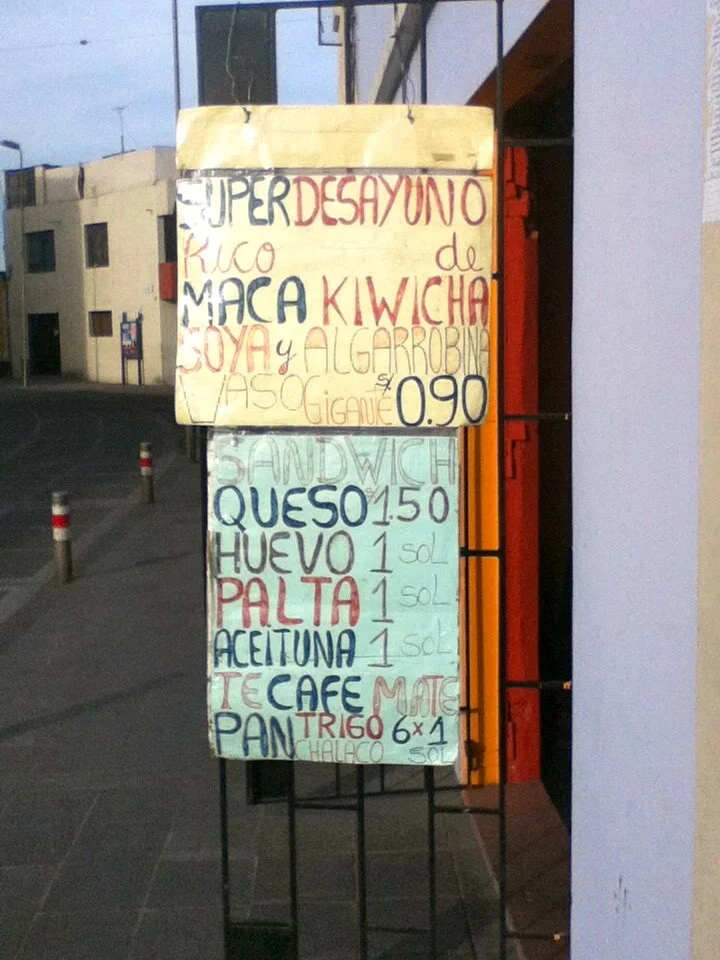 SUPER DESAYUNO
Rico de
MACA KIWICHA
SOYA y ALGARROBINA
VASO GIGANTE S/. 0.90
SANDWICH
QUESO S/ 1.50
HUEVO 1 SOL
PALTA 1 SOL
ACEITUNA 1 SOL
TE CAFE MATE
PAN TRIGO 6x1
CHALACO SOL